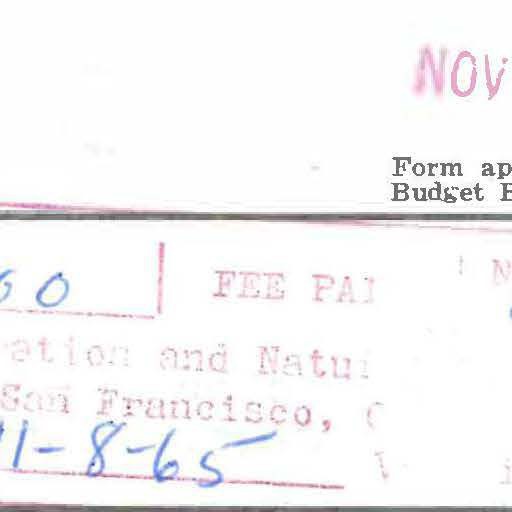 NOV
Form ap
Budget B
60 FEE PAI N
ation and Natu
San Francisco, C
11-8-65